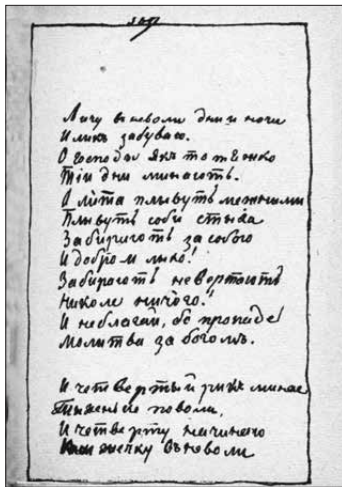 Личу в неволи дни и ночи
И ликъ забуваю.
О Господы Якъ то тяжко
Тіи дни минаютъ.
А лита плывутъ межъ ними
Плывутъ соби стыха
Забираютъ за собою
И добро и лыхо!
Забираютъ невертаютъ
Николы ничого!
И неблагай, бо пропаде
Молитва за богомъ.
И четвертый рикъ минае
Тыхенько поволи,
И четверту начинаю
Книжечку въ неволи